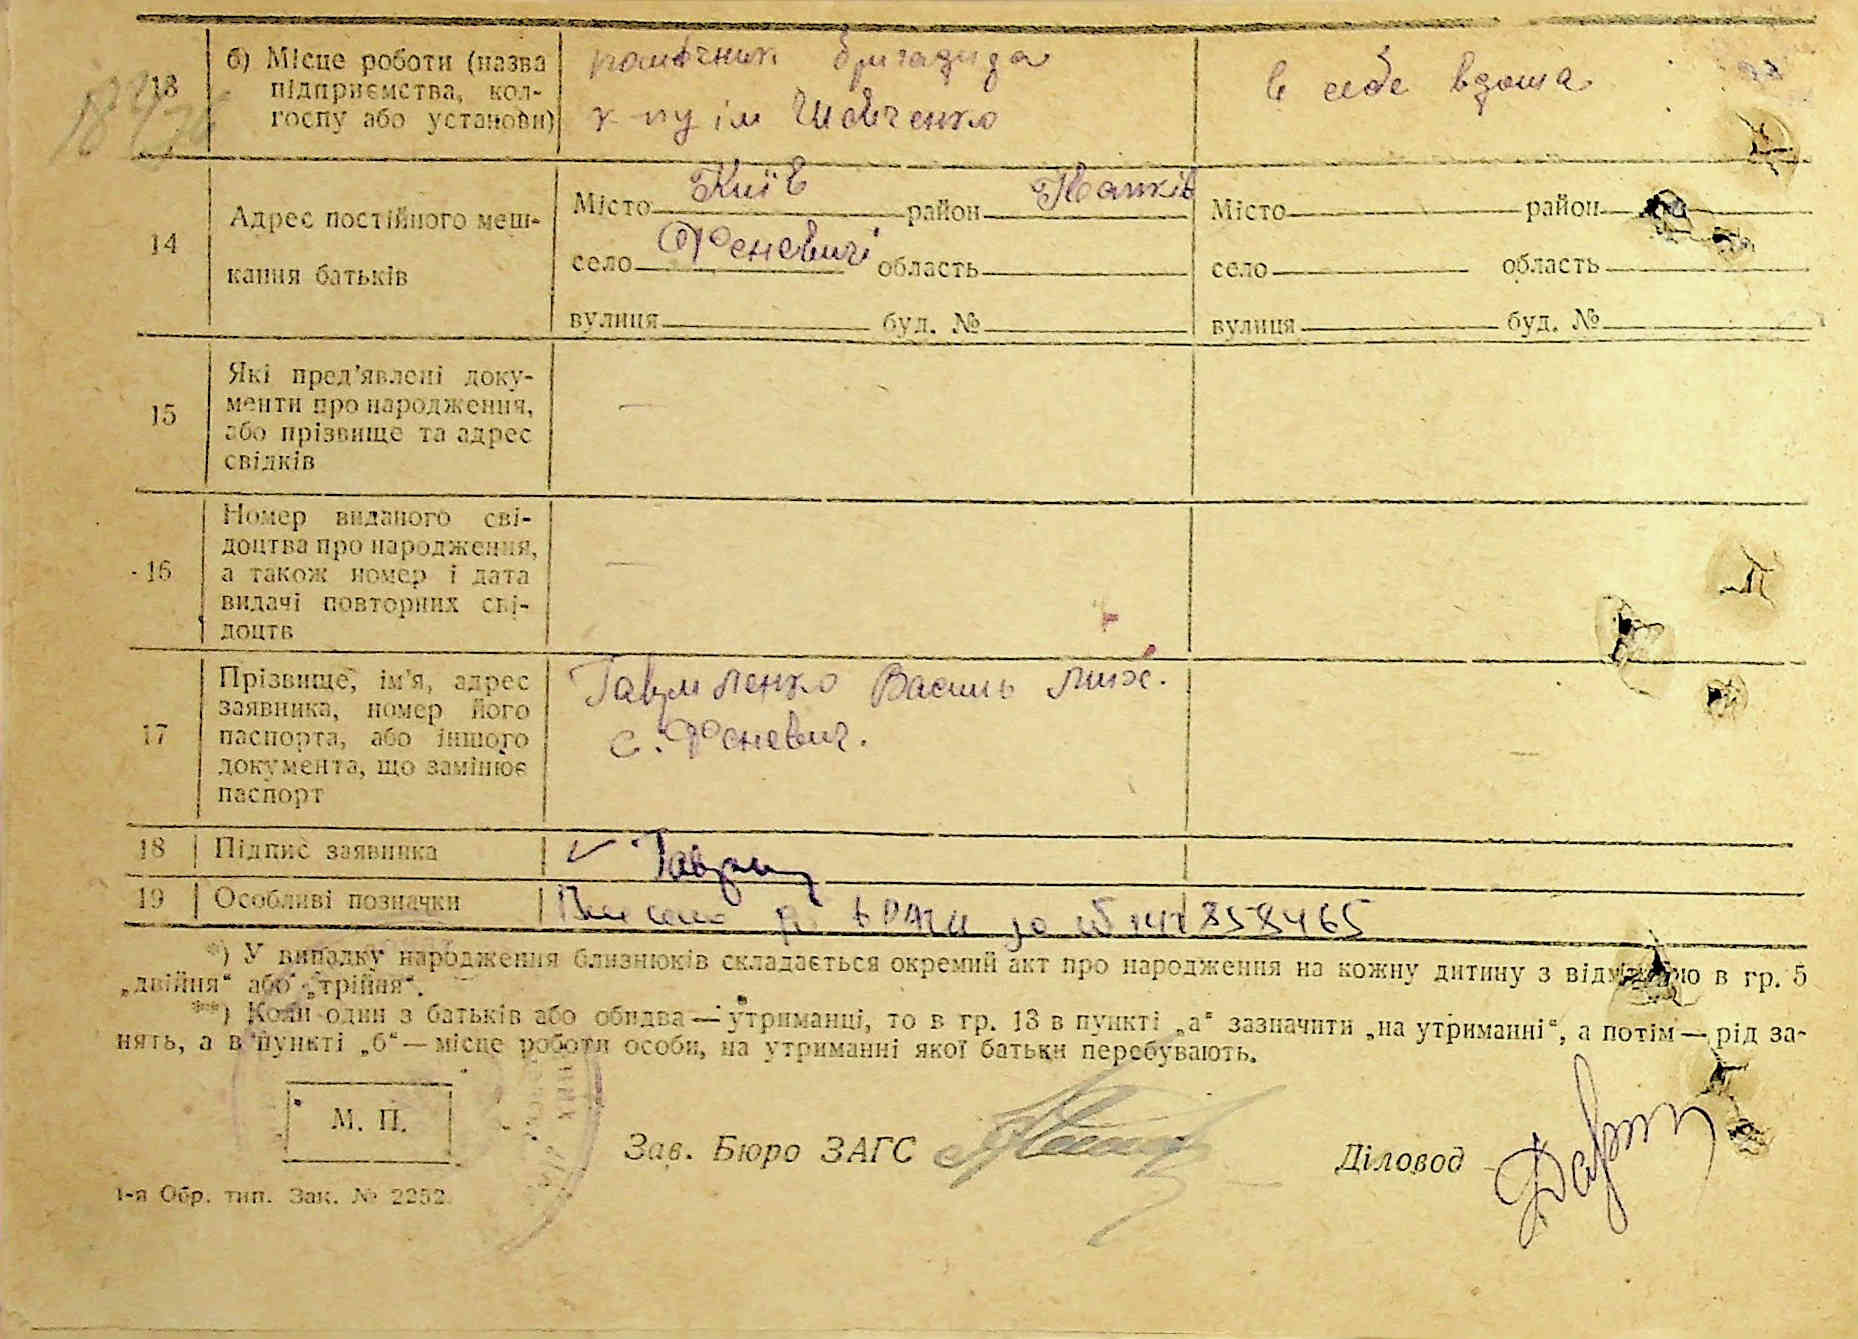 13 б) Місце роботи (назва підприємства, колгоспу або установи)
помічник бригадира
к-пу ім Шевченко
в себе вдома
14 Адрес постійного мешкання батьків
Місто Київ район Іванків
село Фенєвичі область
вулиця буд. №
Місто район
село область
вулиця буд. №
15 Які пред'явлені документи про народження, або прізвище та адрес свідків
—
16 Номер виданого свідоцтва про народження, а також номер і дата видачі повторних свідоцтв
—
17 Прізвище, ім'я, адрес заявника, номер його паспорта, або іншого документа, що замінює паспорт
Гавриленко Василь Мих.
с. Феневич.
18 Підпис заявника
19 Особливі позначки
Внесено до ДРАЦС за №
*) У випадку народження близнюків складається окремий акт про народження на кожну дитину з відміткою в гр. 5
„двійня“ або „трійня“.
**) Коли один з батьків або обидва — утриманці, то в гр. 13 в пункті „а“ зазначити „на утриманні“, а потім — рід за-
нять, а в пункті „б“ — місце роботи особи, на утриманні якої батьки перебувають.
М. П.
Зав. Бюро ЗАГС
Діловод
1-я Обр. тип. Зак. № 2252.